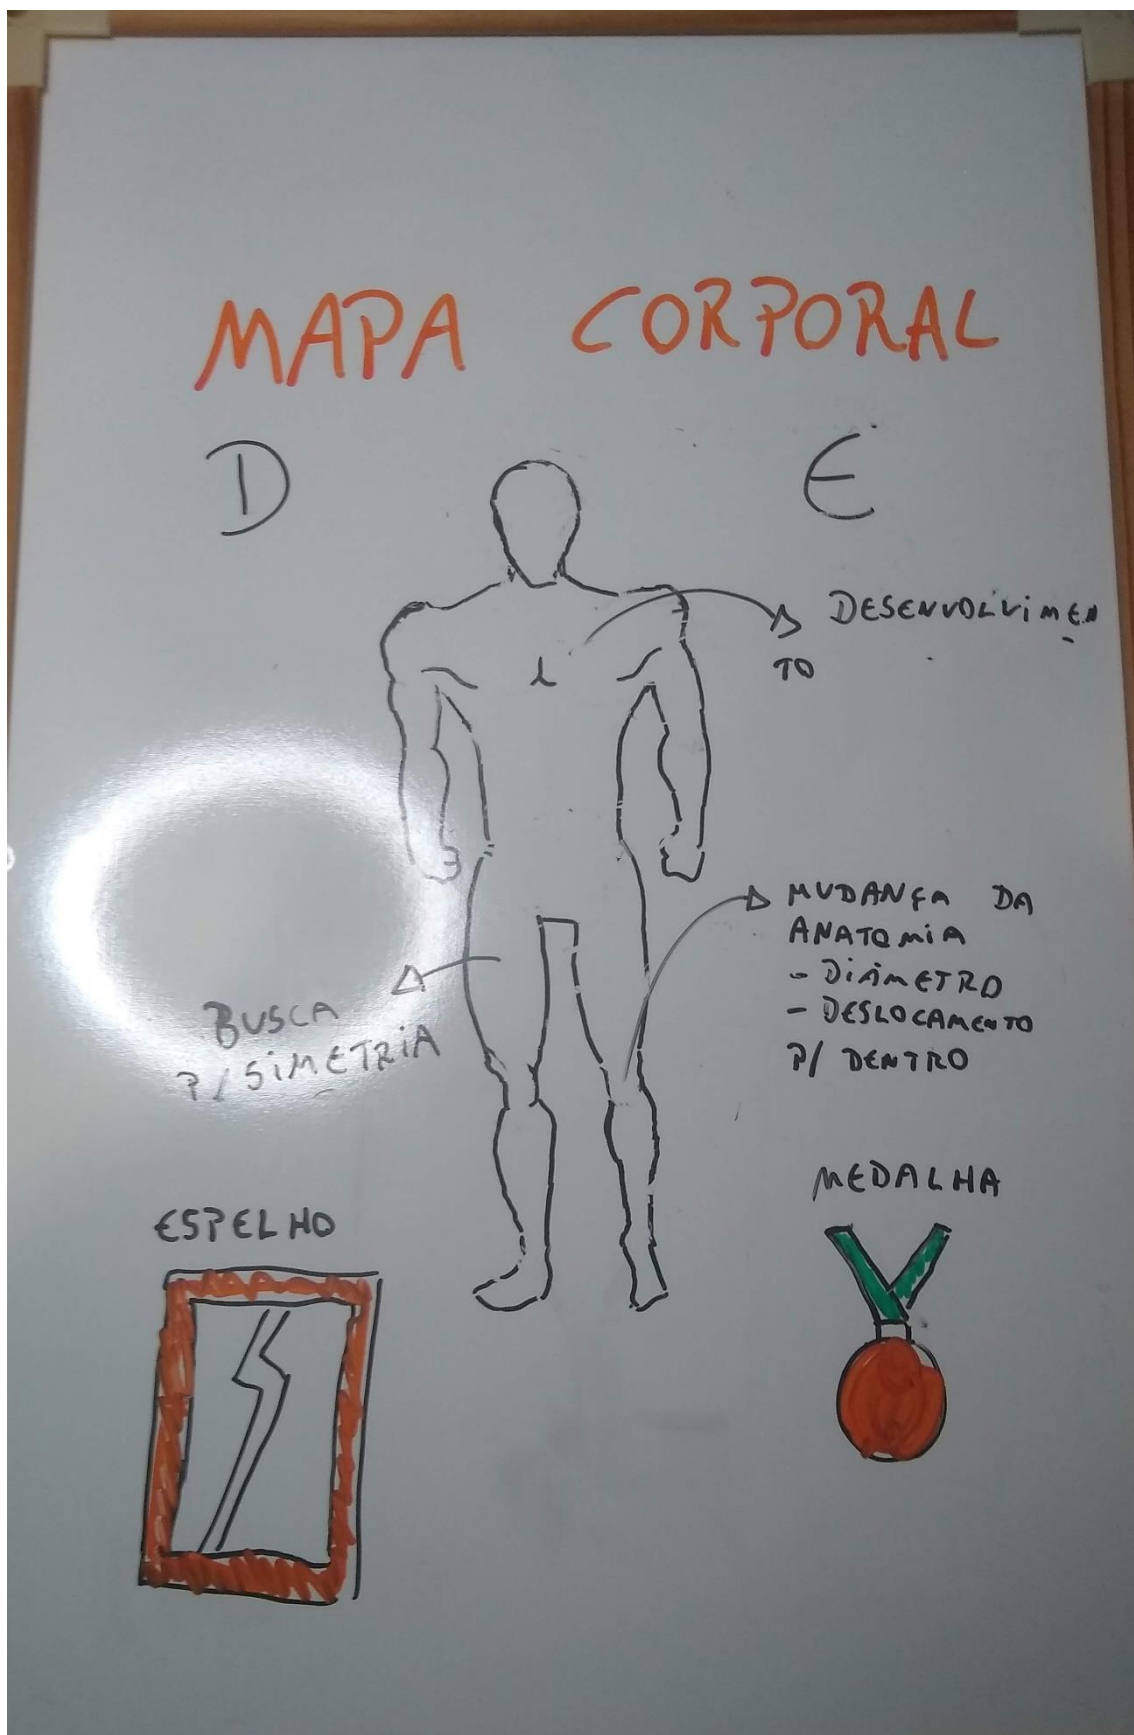 MAPA CORPORAL
D E
DESENVOLVIMEN
TO
MUDANÇA DA
ANATOMIA
- DIÂMETRO
- DESLOCAMENTO
P/ DENTRO
BUSCA
P/ SIMETRIA
MEDALHA
ESPELHO